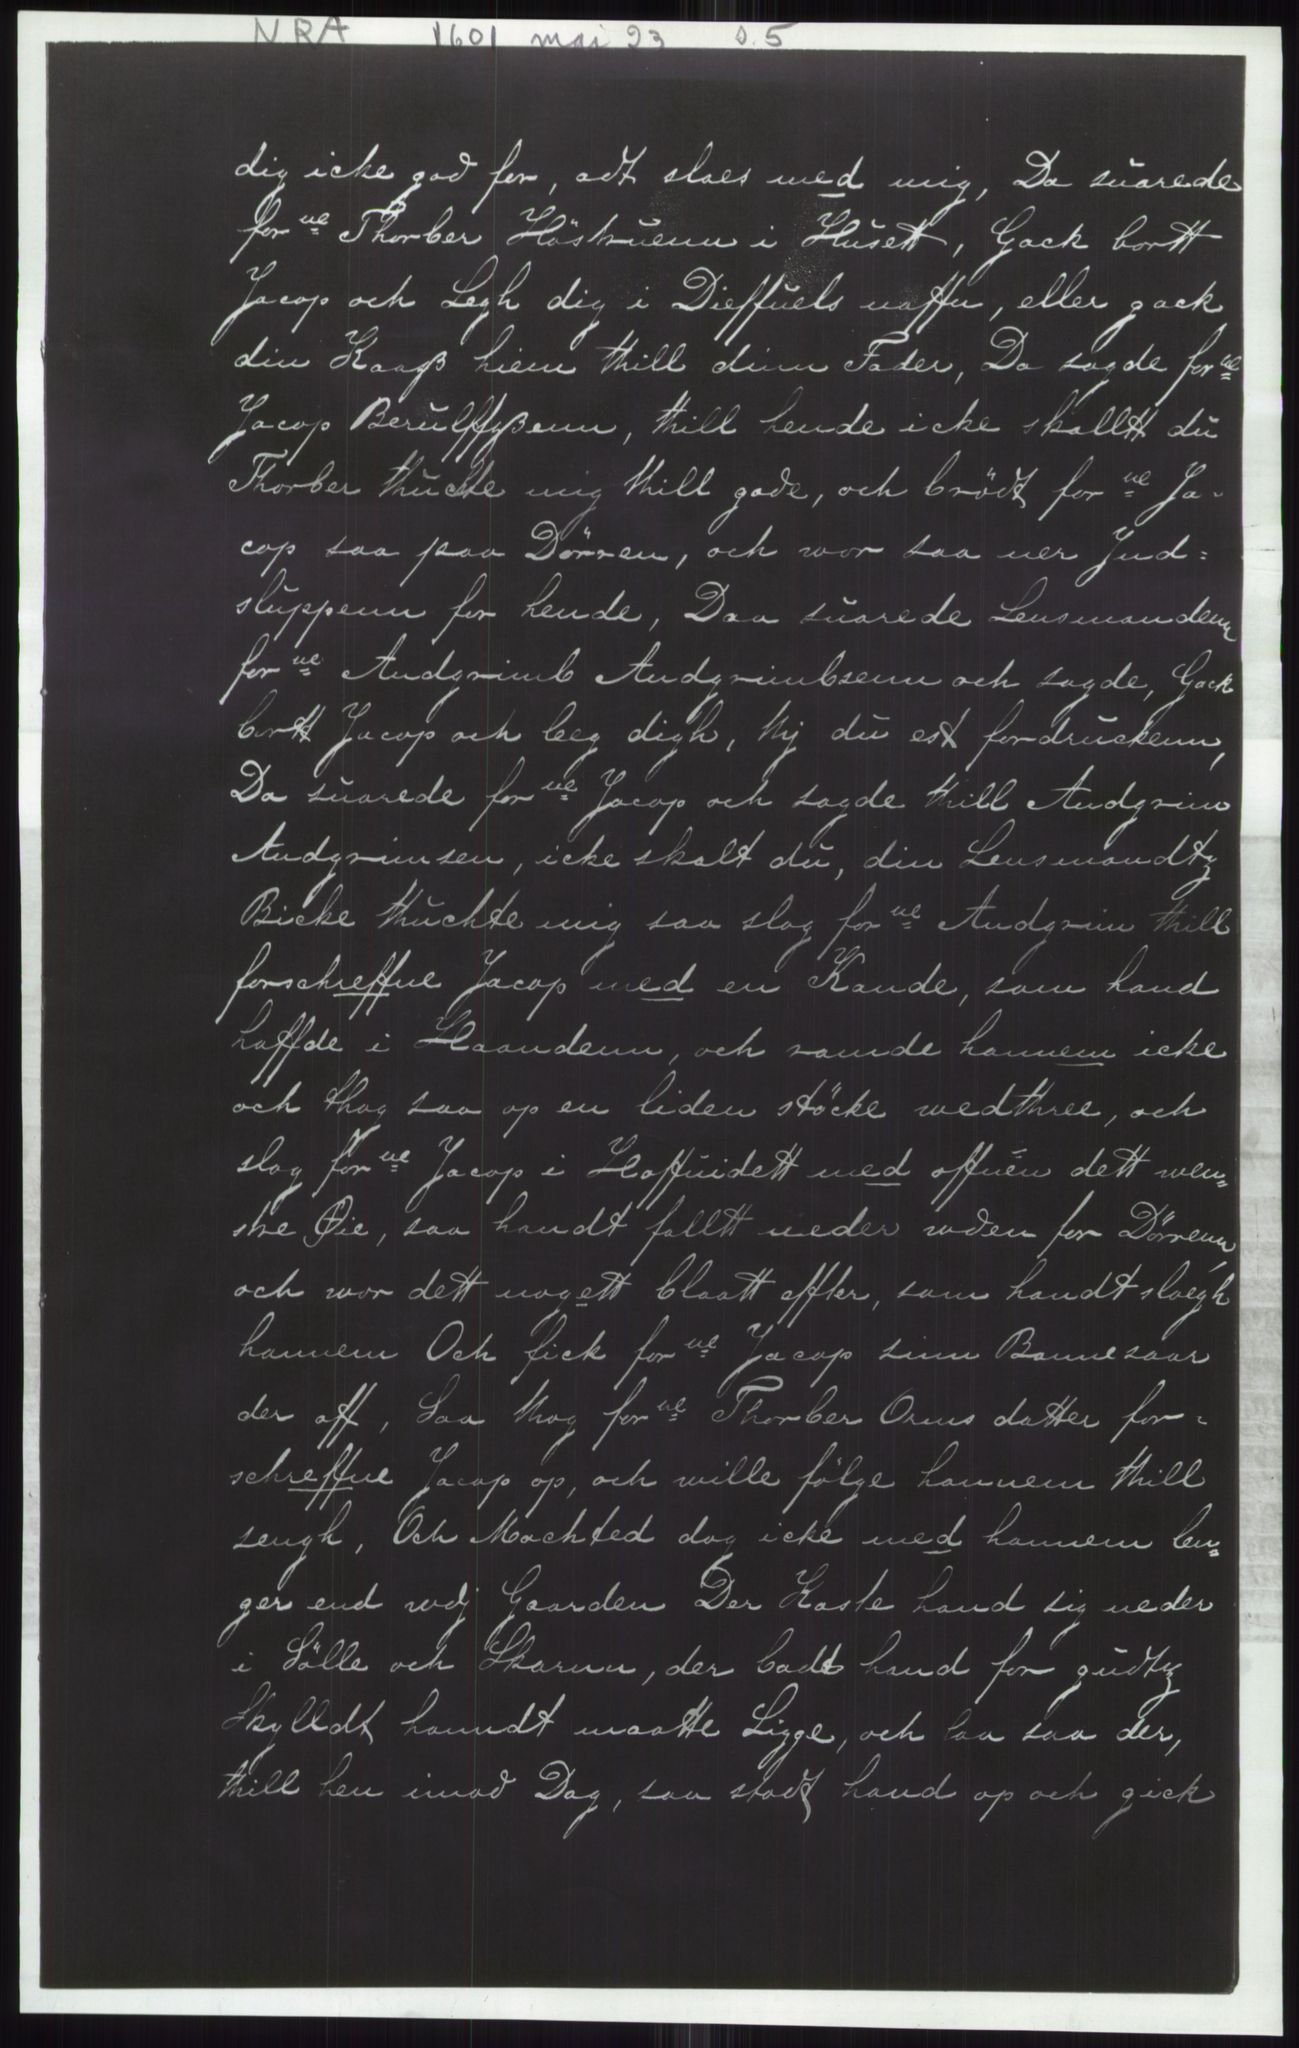 NRA 1601 mai 23 s. 5
dig icke god for, adt slaes med mig, Da suarede
forne Thorber Höstruenn i Husett, Gack bortt
Jacop och Legh dig i Dieffuels naffn, eller gack
din Kaaß hiem thill dinn Fader, Da sagde forne
Jacop Berulffßenn, thill hende icke skalltt du
Thorber thuckte mig thill gode, och brödt forne Ja-
cop saa paa Dörren, och wor saa ner Jnd-
sluppenn for hende, Daa suarede Lensmandenn
forne Andgrimb Andgrimbsenn och sagde, Gack
bortt Jacop och leg digh, thj du est fordruckenn,
Da suarede forne Jacop och sagde thill Andgrim
Andgrimsen, icke skalt du, din Lensmandtz
Bicke thuchte mig saa slog forne Andgrim thill
forschreffne Jacop med en Kande, som hand
haffde i Haandenn, och ramde hannem icke
och thog saa op en liden stöcke wedthree, och
slog forne Jacop i Hoffuidett med offuen dett wen-
stre Øie, saa handt falltt neder wden for Dörrenn,
och wor dett nogett blaatt effter, som handt sloegh
hannem Och fick forne Jacop sinn Banesaar
der aff, Saa thog forne Thorber Orms datter for-
schreffne Jacop op, och wille fölge hannem thill
sengh, Och Machted dog icke med hannem len-
ger end wdj Gaarden Der Kaste hand sig neder
i Sölle och Skarnn, der badt hand for gudtz
Skylldt hanndt maatte Ligge, och laa saa der,
thill hen imod Dag, saa stodt hand op och gick